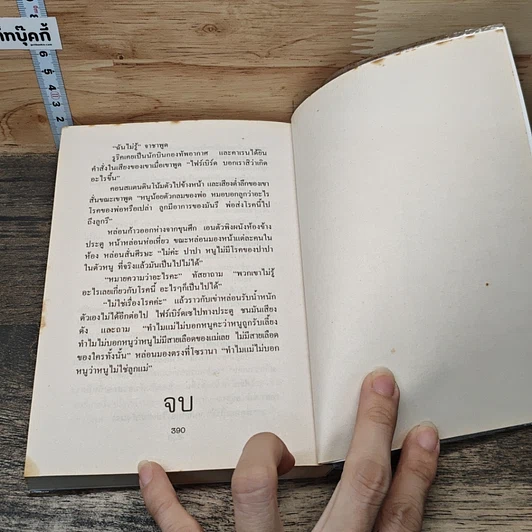 กทบุ๊คกี้
6
5
4
3
2
“ฉันไม่รู้” จาชาพูด
รูริคเคยเป็นนักบินกองทัพอากาศ และคาเรนได้ยิน
คำสั่งในเสียงของเขาเมื่อเขาพูด “ไฟร์เบิร์ด บอกเราสิว่าเกิด
อะไรขึ้น”
คอนสแตนตินโน้มตัวไปข้างหน้า และเสียงต่ำลึกของเขา
สั่นขณะเขาพูด “หนูน้อยตัวกลมของพ่อ หมอบอกลูกว่าอะไร
โรคของพ่อหรือเปล่า ลูกมีอาการของมันรึ พ่อส่งโรคนี้ไป
ถึงลูกรึ”
หล่อนก้าวออกห่างจากขุนศึก เอนตัวพิงผนังห้องข้าง
ประตู หน้าหล่อนห่อเหี่ยว ขณะหล่อนมองหน้าแต่ละคนใน
ห้อง หล่อนสั่นศีรษะ “ไม่ค่ะ ปาปา หนูไม่มีโรคของปาปา
ในตัวหนู ที่จริงแล้วมันเป็นไปไม่ได้”
“หมายความว่าอะไรคะ” ทัสยาถาม “พวกเขาไม่รู้
อะไรเลยเกี่ยวกับโรคนี้ อะไรๆก็เป็นไปได้”
“ไม่ใช่เรื่องโรคค่ะ” แล้วราวกับเข่าหล่อนรับน้ำหนัก
ตัวเองไม่ได้อีกต่อไป ไฟร์เบิร์ดเซไปทางประตู ชนมันเสียง
ดัง และถาม “ทำไมแม่ไม่บอกหนูคะว่าหนูถูกรับเลี้ยง
ทำไมไม่บอกหนูว่าหนูไม่มีสายเลือดของแม่เลย ไม่มีสายเลือด
ของใครทั้งนั้น” หล่อนมองตรงที่โซรานา “ทำไมแม่ไม่บอก
หนูว่าหนูไม่ใช่ลูกแม่”
จบ
390